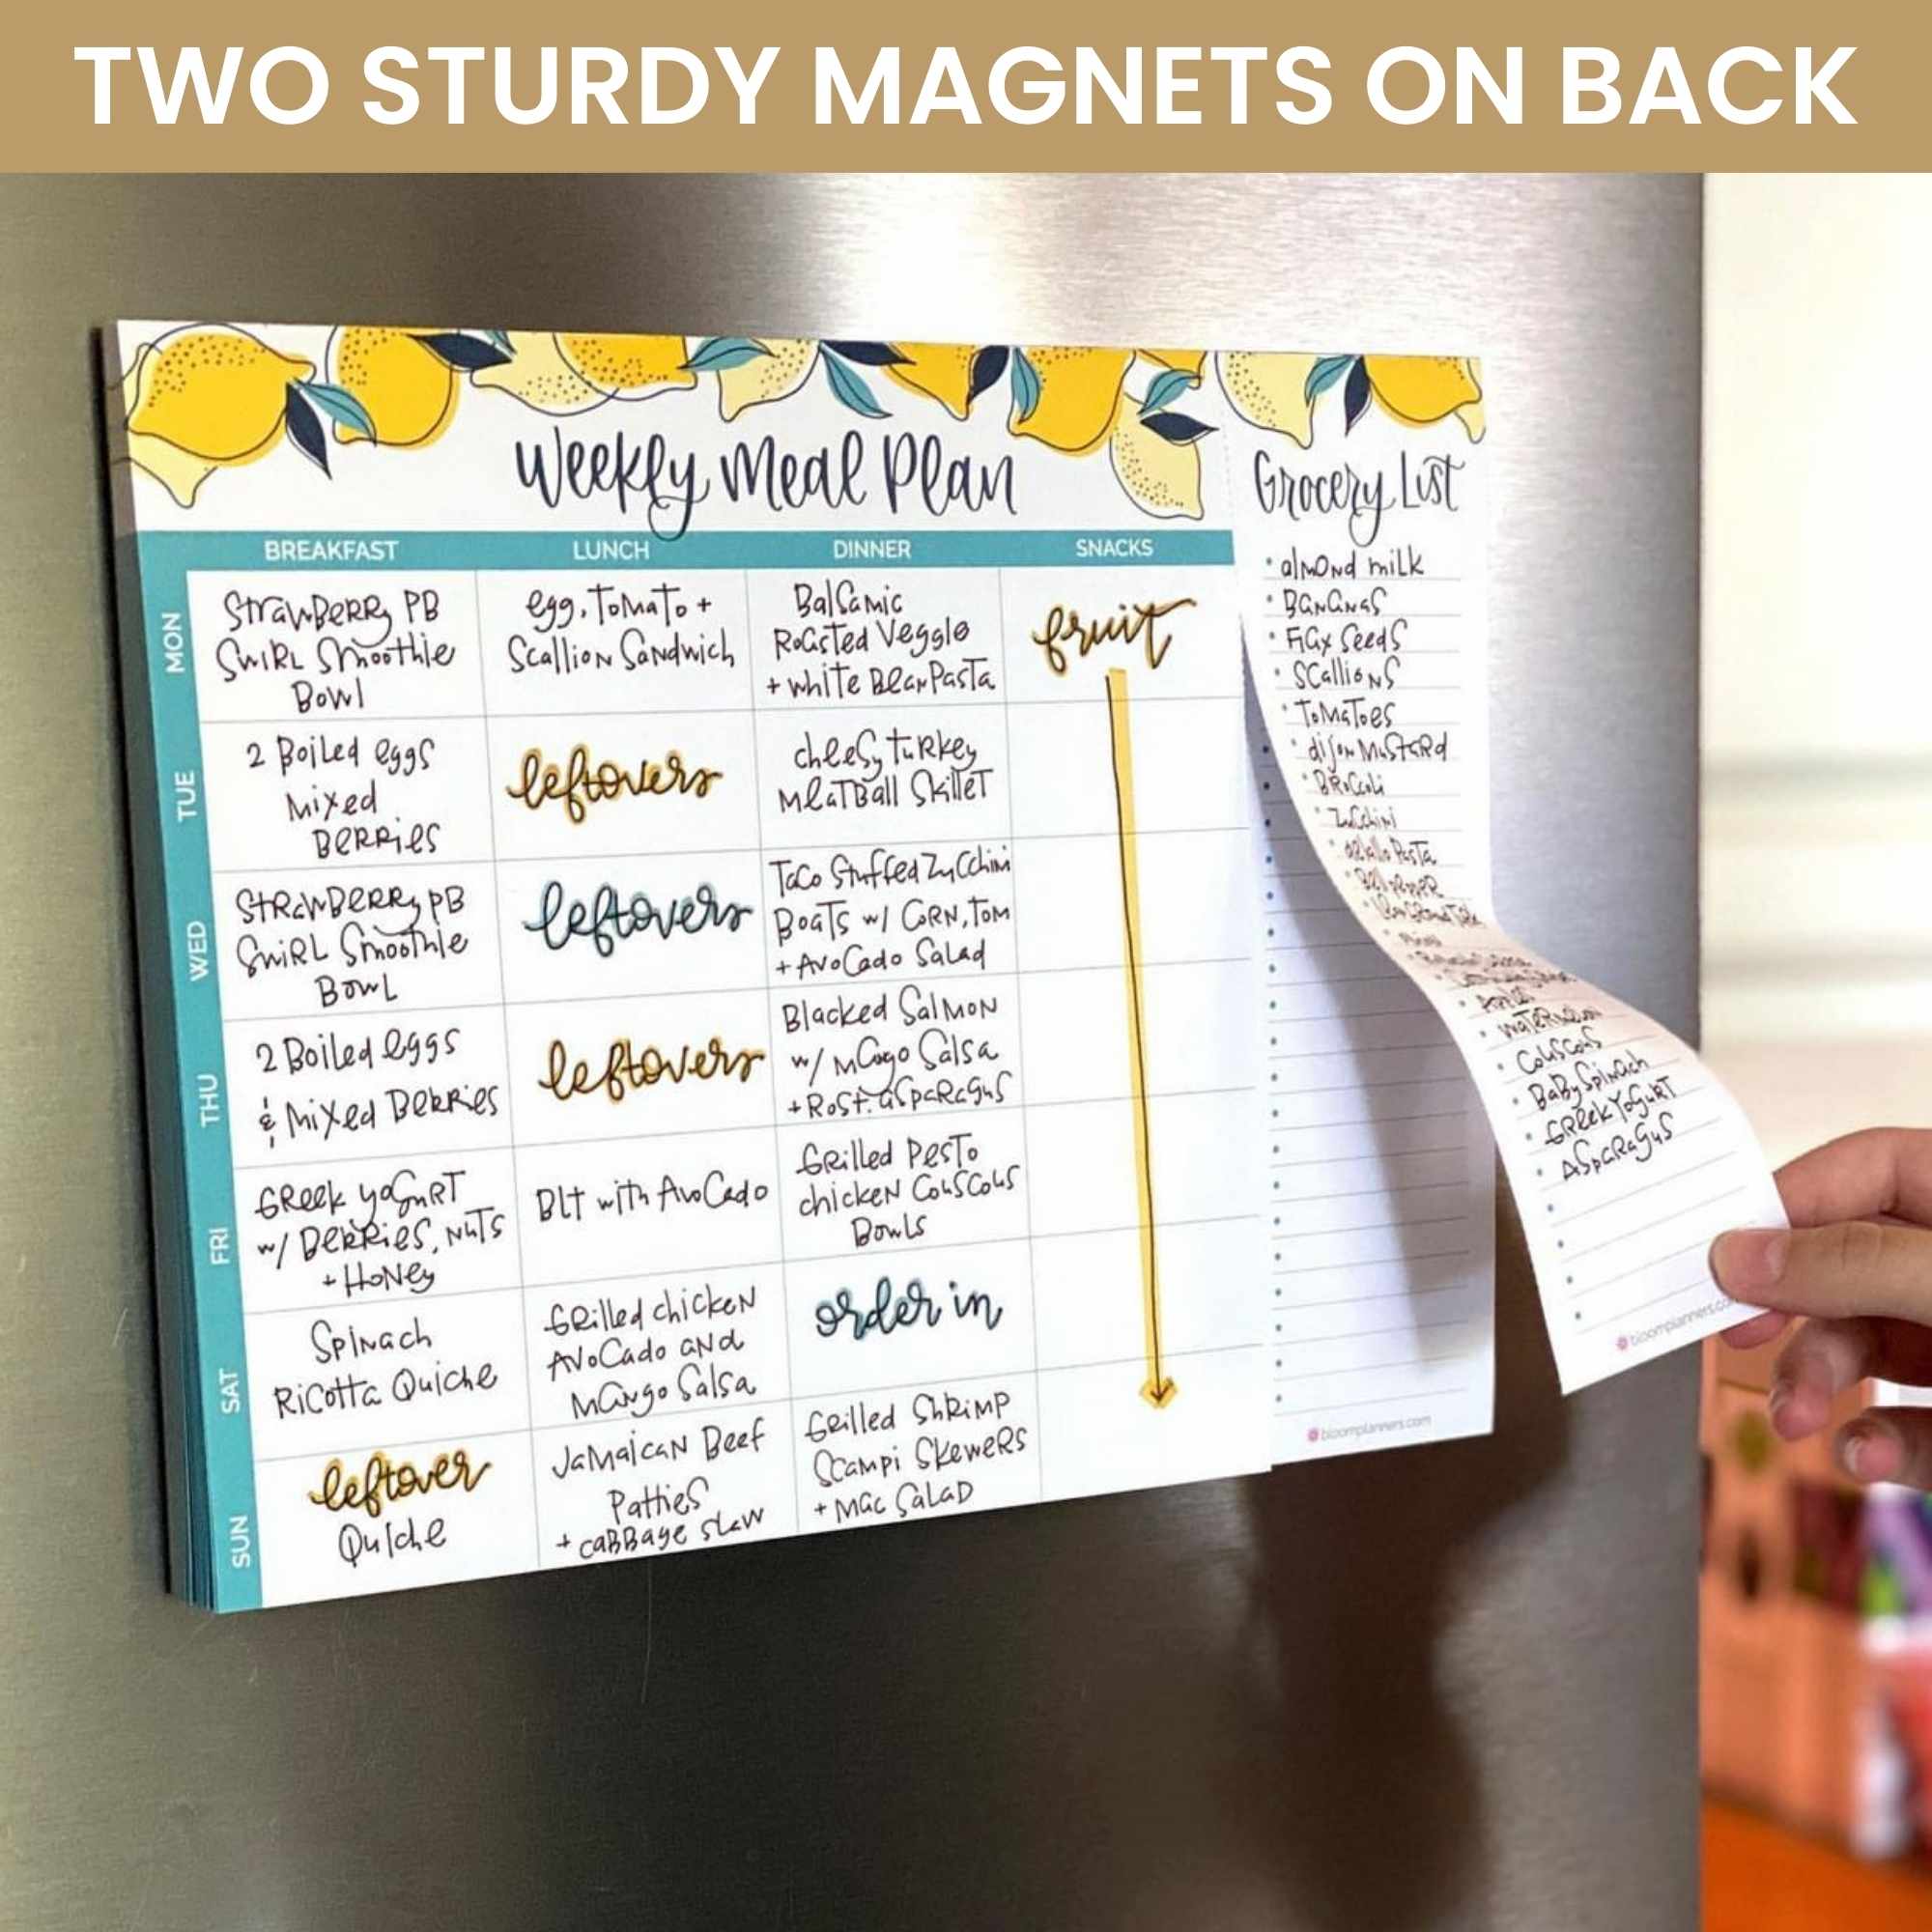 TWO STURDY MAGNETS ON BACK
Weekly Meal Plan
BREAKFAST LUNCH DINNER SNACKS
MON
Strawberry PB
Swirl Smoothie
Bowl
egg, Tomato +
Scallion Sandwich
Balsamic
Roasted Veggie
+ white Bean Pasta
fruit
TUE
2 Boiled eggs
Mixed
Berries
leftovers
cheesy turkey
Meatball Skillet
WED
Strawberry PB
Swirl Smoothie
Bowl
leftovers
Taco Stuffed Zucchini
Boats w/ Corn, Tom
+ Avocado Salad
THU
2 Boiled eggs
& Mixed Berries
leftovers
Blacked Salmon
w/ Mango Salsa
+ Rost. asparagus
FRI
Greek yogurt
w/ Berries, Nuts
+ Honey
BLT with Avocado
Grilled Pesto
chicken Couscous
Bowls
SAT
Spinach
Ricotta Quiche
Grilled chicken
Avocado and
Mango Salsa
order in
SUN
leftover
Quiche
Jamaican Beef
Patties
+ cabbage slaw
Grilled Shrimp
Scampi Skewers
+ Mac Salad
Grocery List
• almond milk
• Bananas
• Flax Seeds
• Scallions
• Tomatoes
• dijon Mustard
• Broccoli
• Zucchini
Pasta
• Bell Pepper
• Apples
• watermelon
• Couscous
• Baby Spinach
• Greek Yogurt
• Asparagus
bloomplanners.com
bloomplanners.com